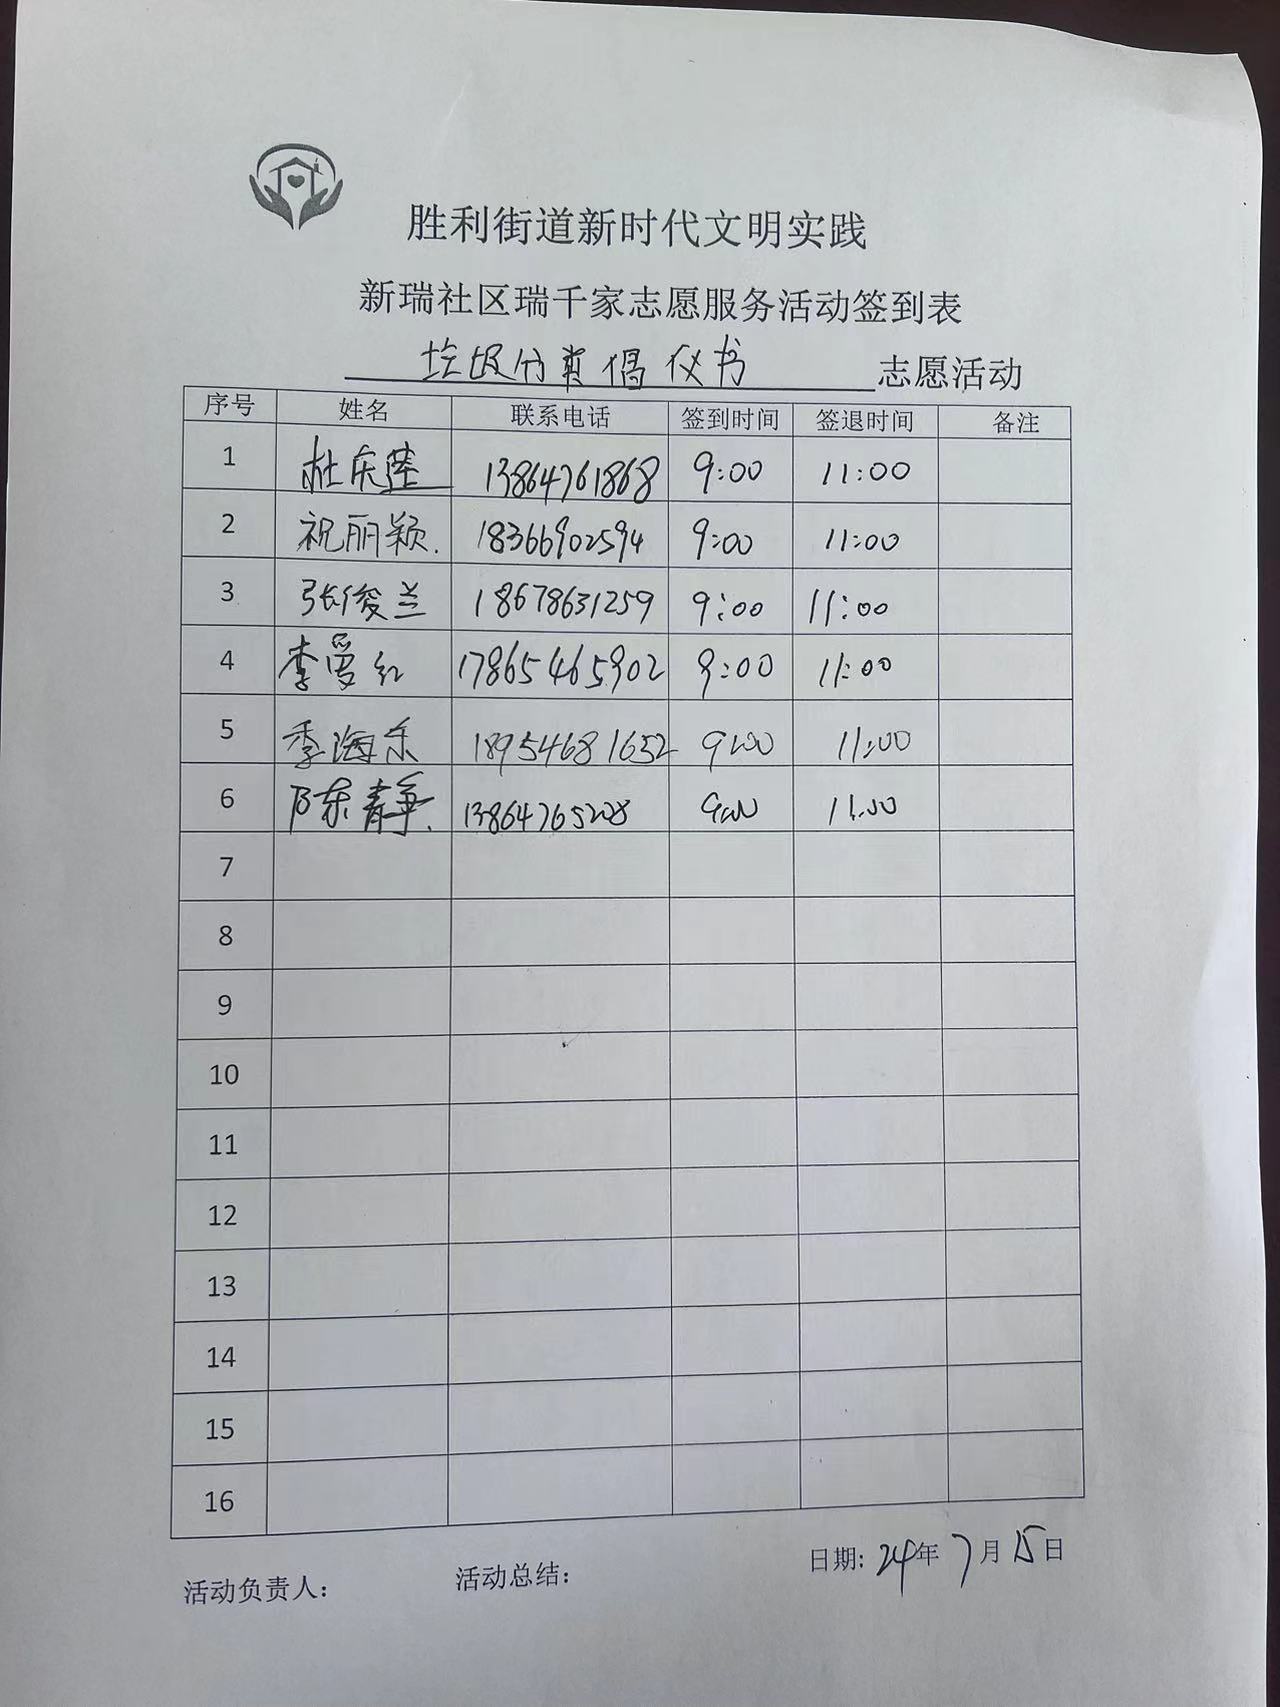 胜利街道新时代文明实践
新瑞社区瑞千家志愿服务活动签到表
垃圾分类倡仪书 志愿活动
序号 姓名 联系电话 签到时间 签退时间 备注
1 杜庆 13864761868 9:00 11:00
2 祝丽颖. 18366902594 9:00 11:00
3 张俊兰 18678631259 9:00 11:00
4 李曼红 17865465902 9:00 11:00
5 季海乐 18954681652 9:00 11:00
6 陈静. 13864765228 9:00 11:00
7
8
9
10
11
12
13
14
15
16
日期: 24年 7月 15日
活动负责人: 活动总结: